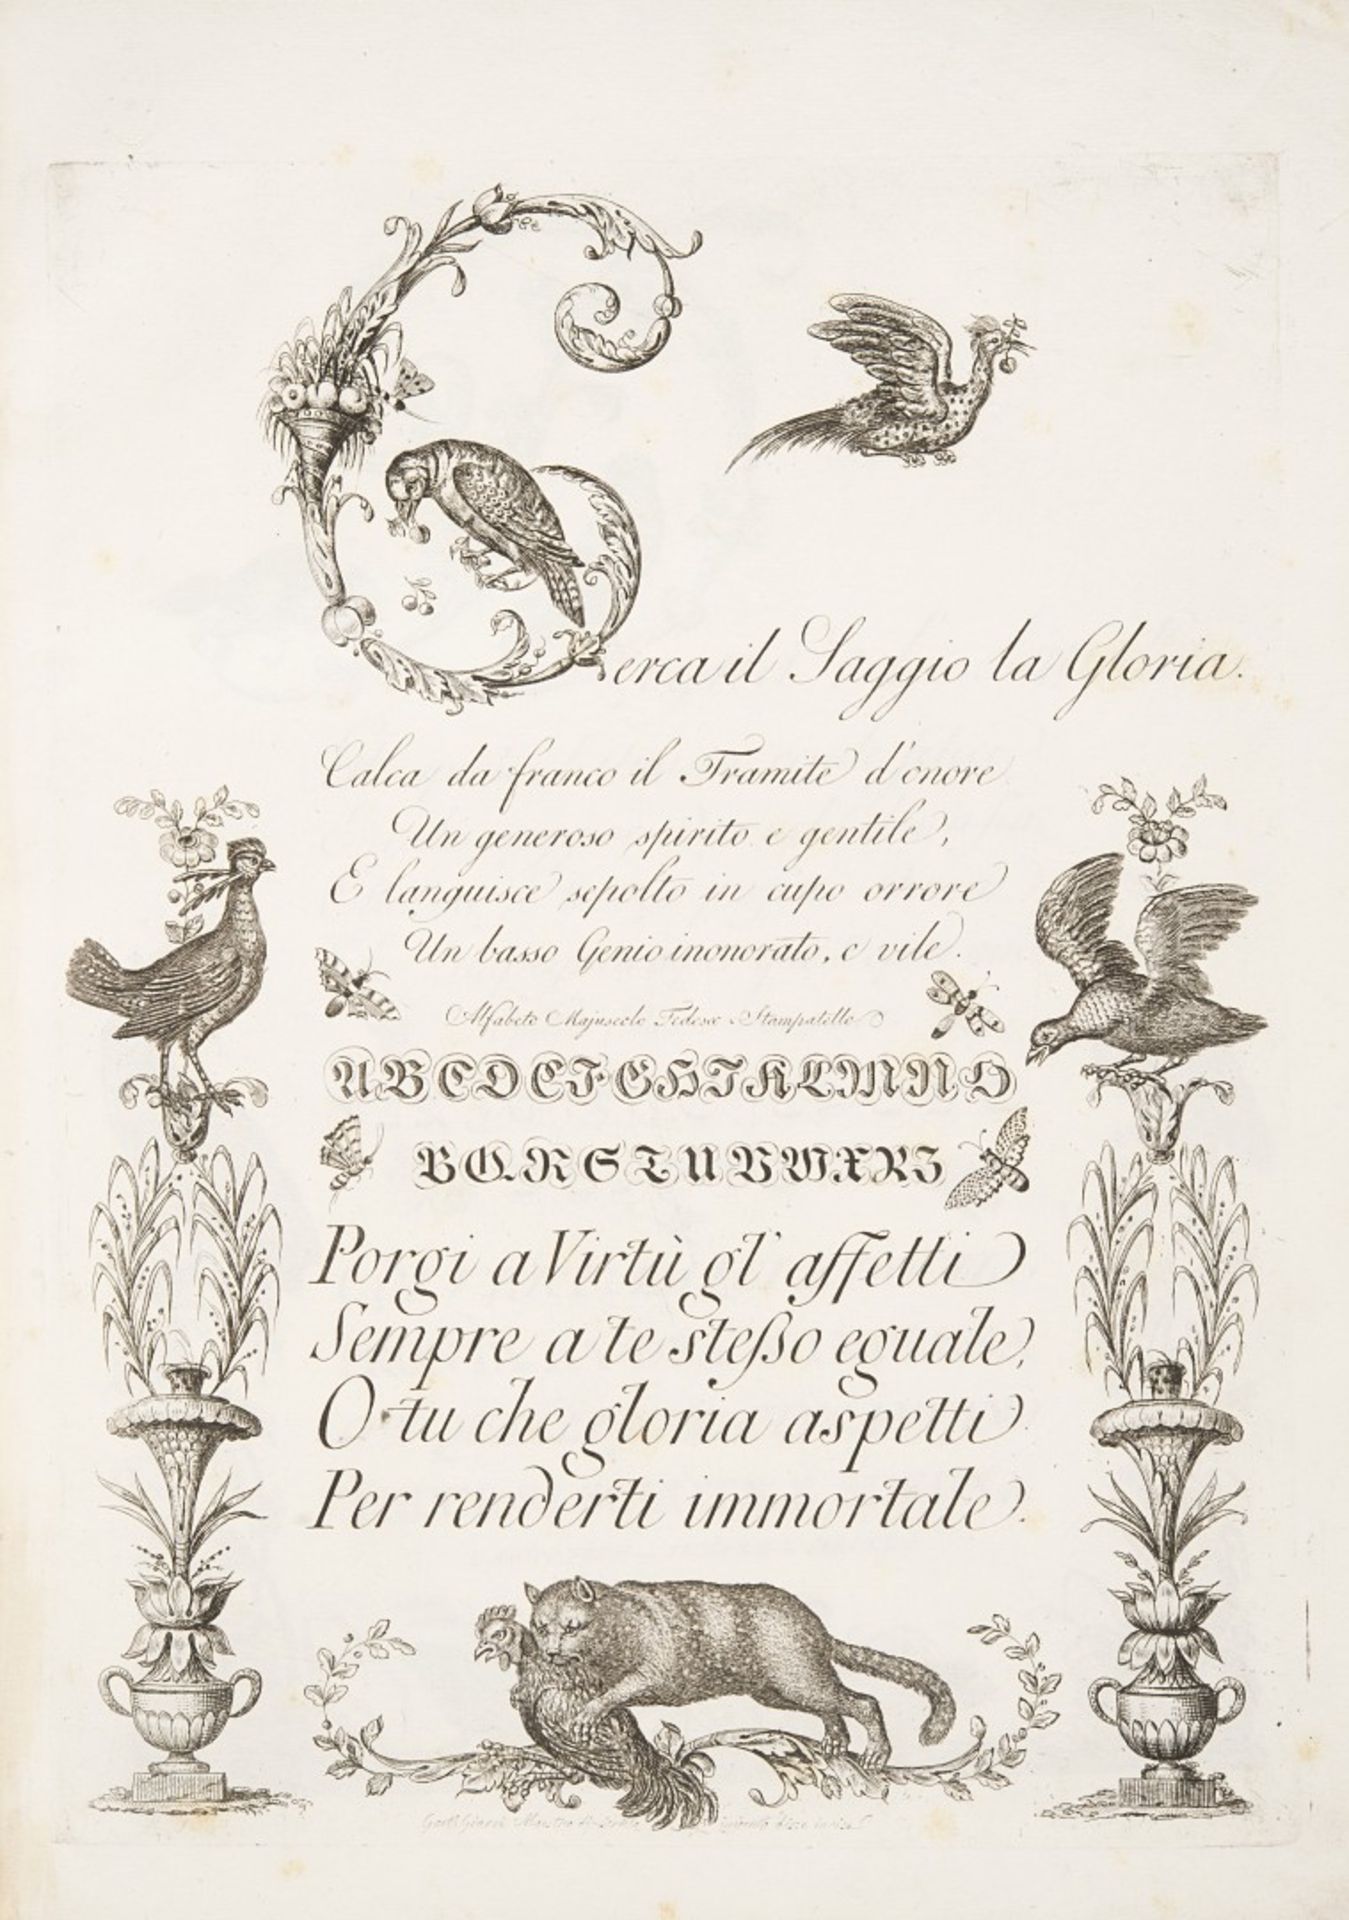 Cerca il Saggio la Gloria.
Calca da franco il Tramite d'onore
Un generoso spirito e gentile,
E languisce sepolto in cupo orrore
Un basso Genio inonorato, e vile.
Alfabeto Majuscolo Tedesco Stampatello
A B C D E F G H I K L M N O
P Q R S T U V W X Y Z
Porgi a Virtù gl' affetti
Sempre a te steßo eguale,
O tu che gloria aspetti
Per renderti immortale.